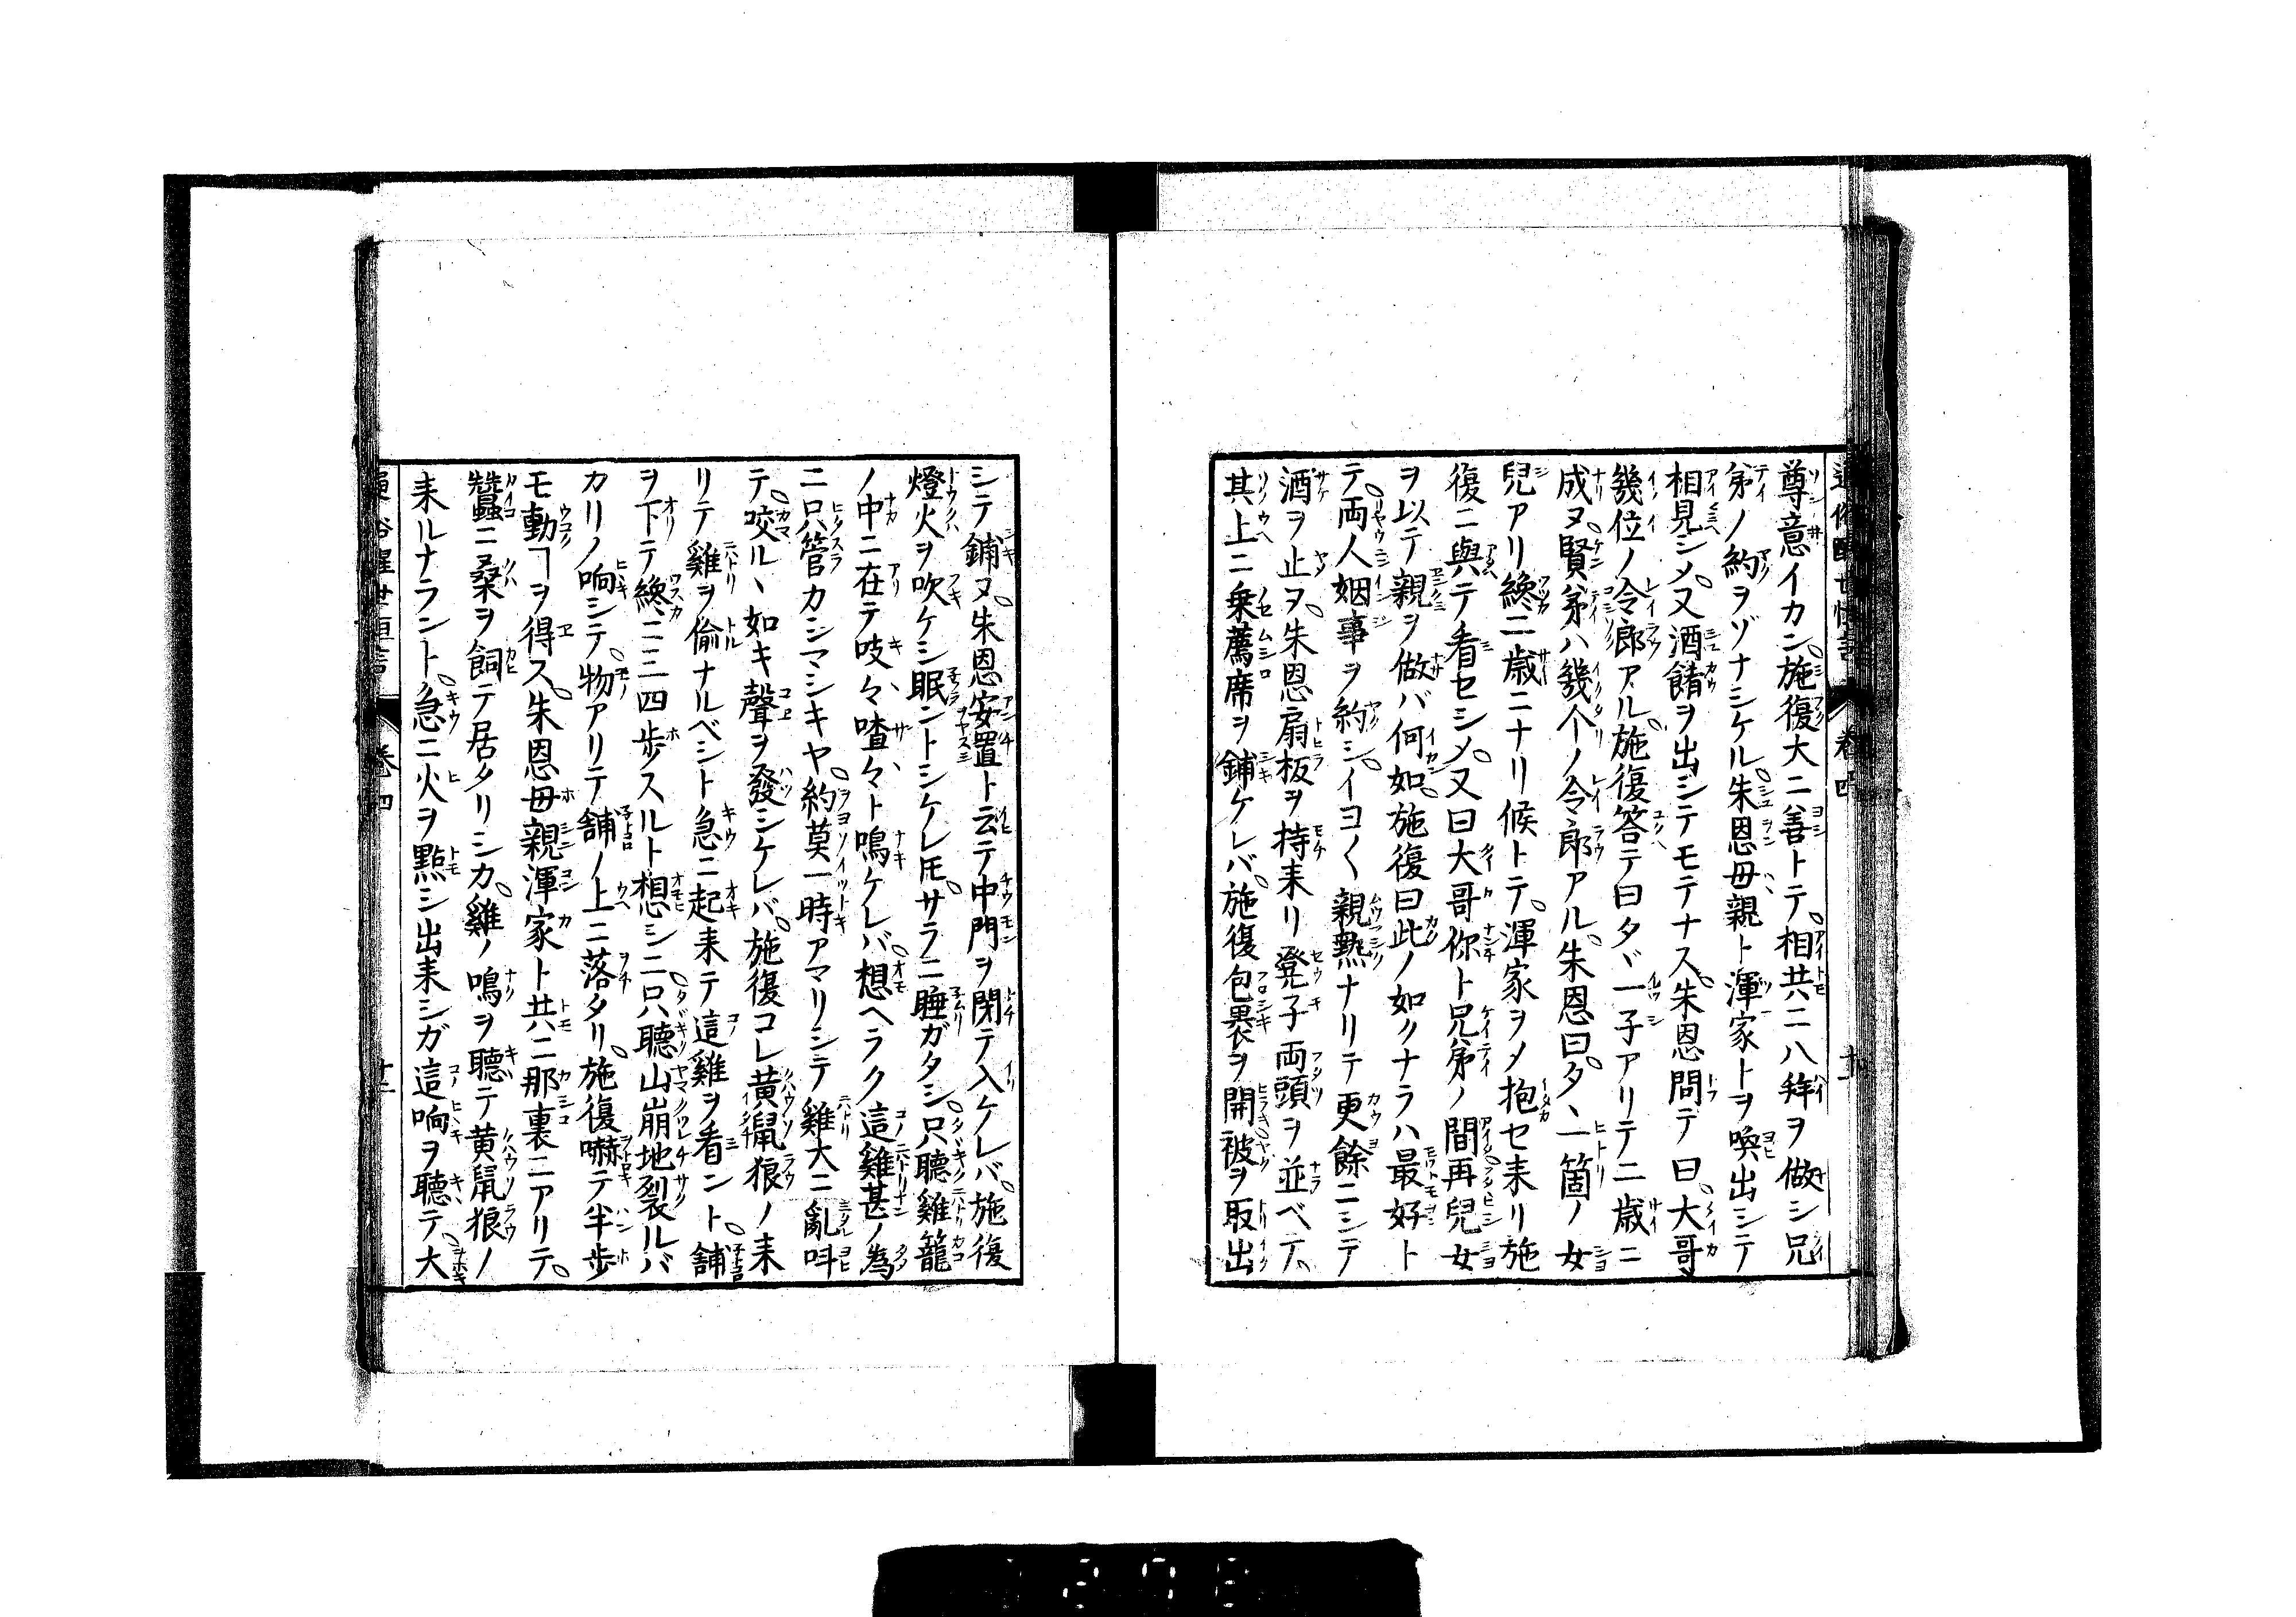 尊意イカン。施復大ニ善トテ。相共ニ八拜ヲ做シ兄
弟ノ約ヲゾナシケル。朱恩母親ト渾家トヲ喚出シテ
相見シメ。又酒餚ヲ出シテモテナス。朱恩問テ曰。大哥
幾位ノ令郎アル。施復答テ曰タヾ一子アリテ二歳ニ
成ヌ。賢弟ハ幾个ノ令郎アル。朱恩曰。タヽ一箇ノ女
兒アリ纔ニ二歳ニナリ候トテ。渾家ヲメ抱セ来リ施
復ニ與テ看セシメ。又曰大哥你ト兄弟ノ間再兒女
ヲ以テ親ヲ做バ何如。施復曰此ノ如クナラハ最好ト
テ。両人姻事ヲ約シ。イヨ〱親熱ナリテ更餘ニシテ
酒ヲ止ヌ。朱恩扇板ヲ持来リ凳子両頭ヲ並ベテ。
其上ニ乗薦席ヲ鋪ケレバ。施復包裹ヲ開被ヲ取出
シテ鋪ヌ。朱恩安置ト云テ中門ヲ閉テ入ケレバ。施復
燈火ヲ吹ケシ眠ントシケレ𪜈。サラニ睡ガタシ。只聴雞籠
ノ中ニ在テ吱々喳々ト鳴ケレバ。想ヘラク這雞甚ノ為
ニ只管カシマシキヤ。約莫一時アマリシテ雞大ニ亂呌
テ。咬ルヽ如キ聲ヲ發シケレバ。施復コレ黄鼠狼ノ来
リテ雞ヲ偷ナルベシト急ニ起来テ這雞ヲ看ント。舗
ヲ下テ纔ニ三四歩スルト想シニ。只聴山崩地裂ルバ
カリノ响シテ。物アリテ舗ノ上ニ落タリ。施復嚇テ半歩
モ動ヿヲ得ス。朱恩母親渾家ト共ニ那裏ニアリテ。
蠶ニ桑ヲ飼テ居タリシカ。雞ノ鳴ヲ聴テ黄鼠狼ノ
来ルナラント。急ニ火ヲ點シ出来シガ這响ヲ聴テ。大